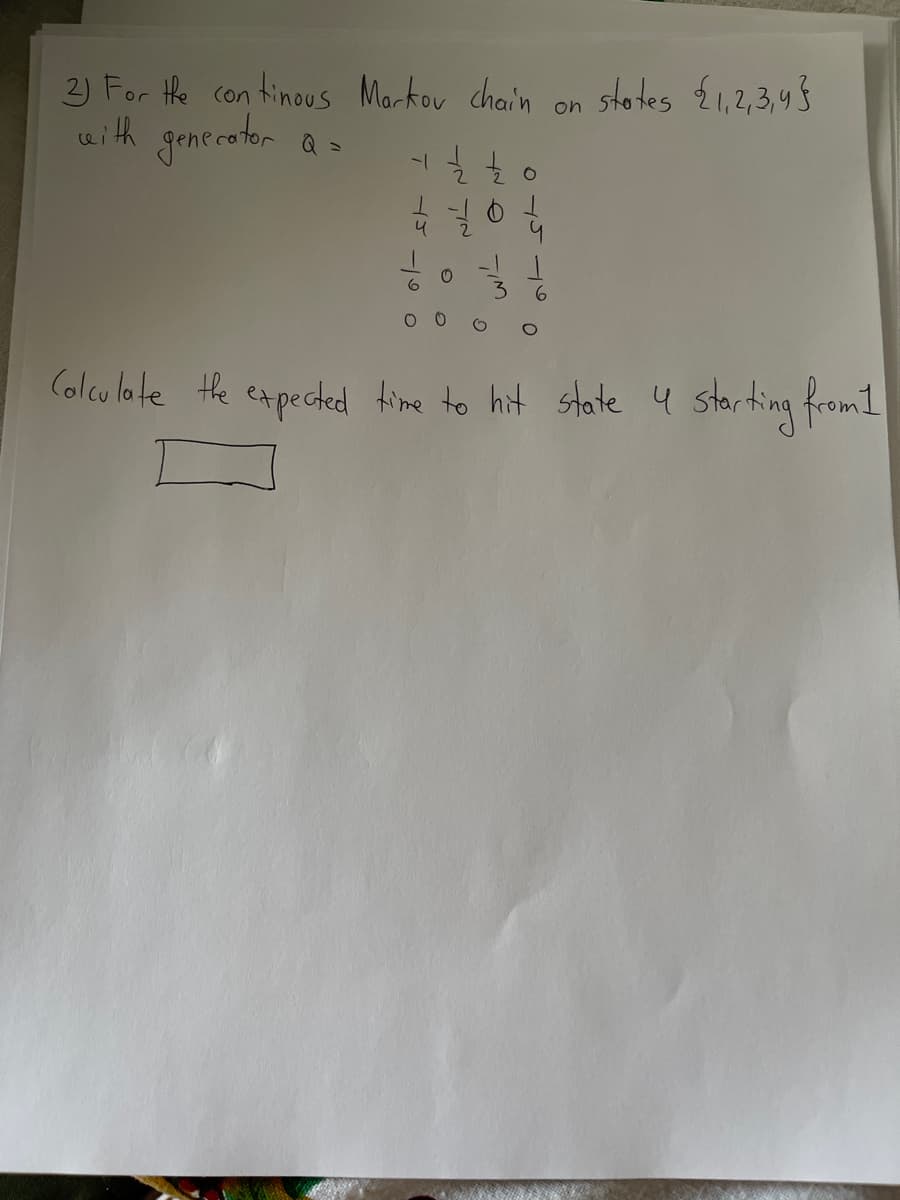 2) For the continous Markov chain on states {1,2,3,4}
with generator Q =
-1 1/2 1/2 0
1/4 -1/2 0 1/4
1/6 0 -1/3 1/6
0 0 0 0
Calculate the expected time to hit state 4 starting from 1